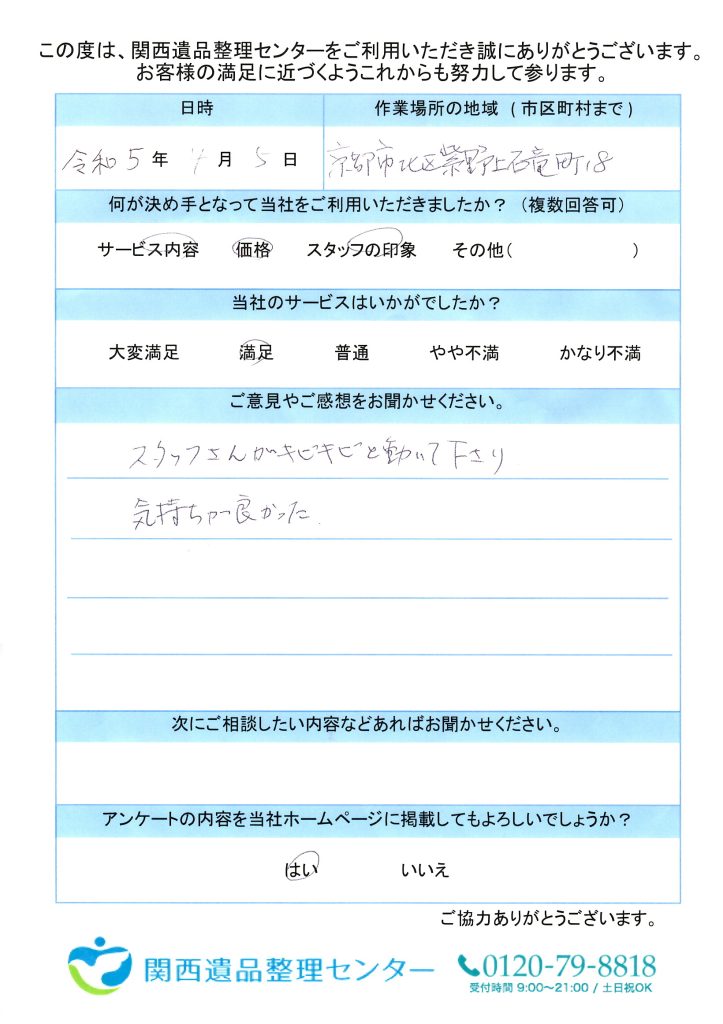 この度は、関西遺品整理センターをご利用いただき誠にありがとうございます。
お客様の満足に近づくようこれからも努力して参ります。
日時
作業場所の地域 (市区町村まで)
令和5年 月5日
京都市北区紫野上石竜町18
何が決め手となって当社をご利用いただきましたか？（複数回答可）
サービス内容 価格 スタッフの印象 その他( )
当社のサービスはいかがでしたか？
大変満足 満足 普通 やや不満 かなり不満
ご意見やご感想をお聞かせください。
スタッフさんがキビキビと動いて下さり
気持ちが良かった.
次にご相談したい内容などあればお聞かせください。
アンケートの内容を当社ホームページに掲載してもよろしいでしょうか？
はい いいえ
ご協力ありがとうございます。
関西遺品整理センター
0120-79-8818
受付時間 9:00～21:00 / 土日祝OK